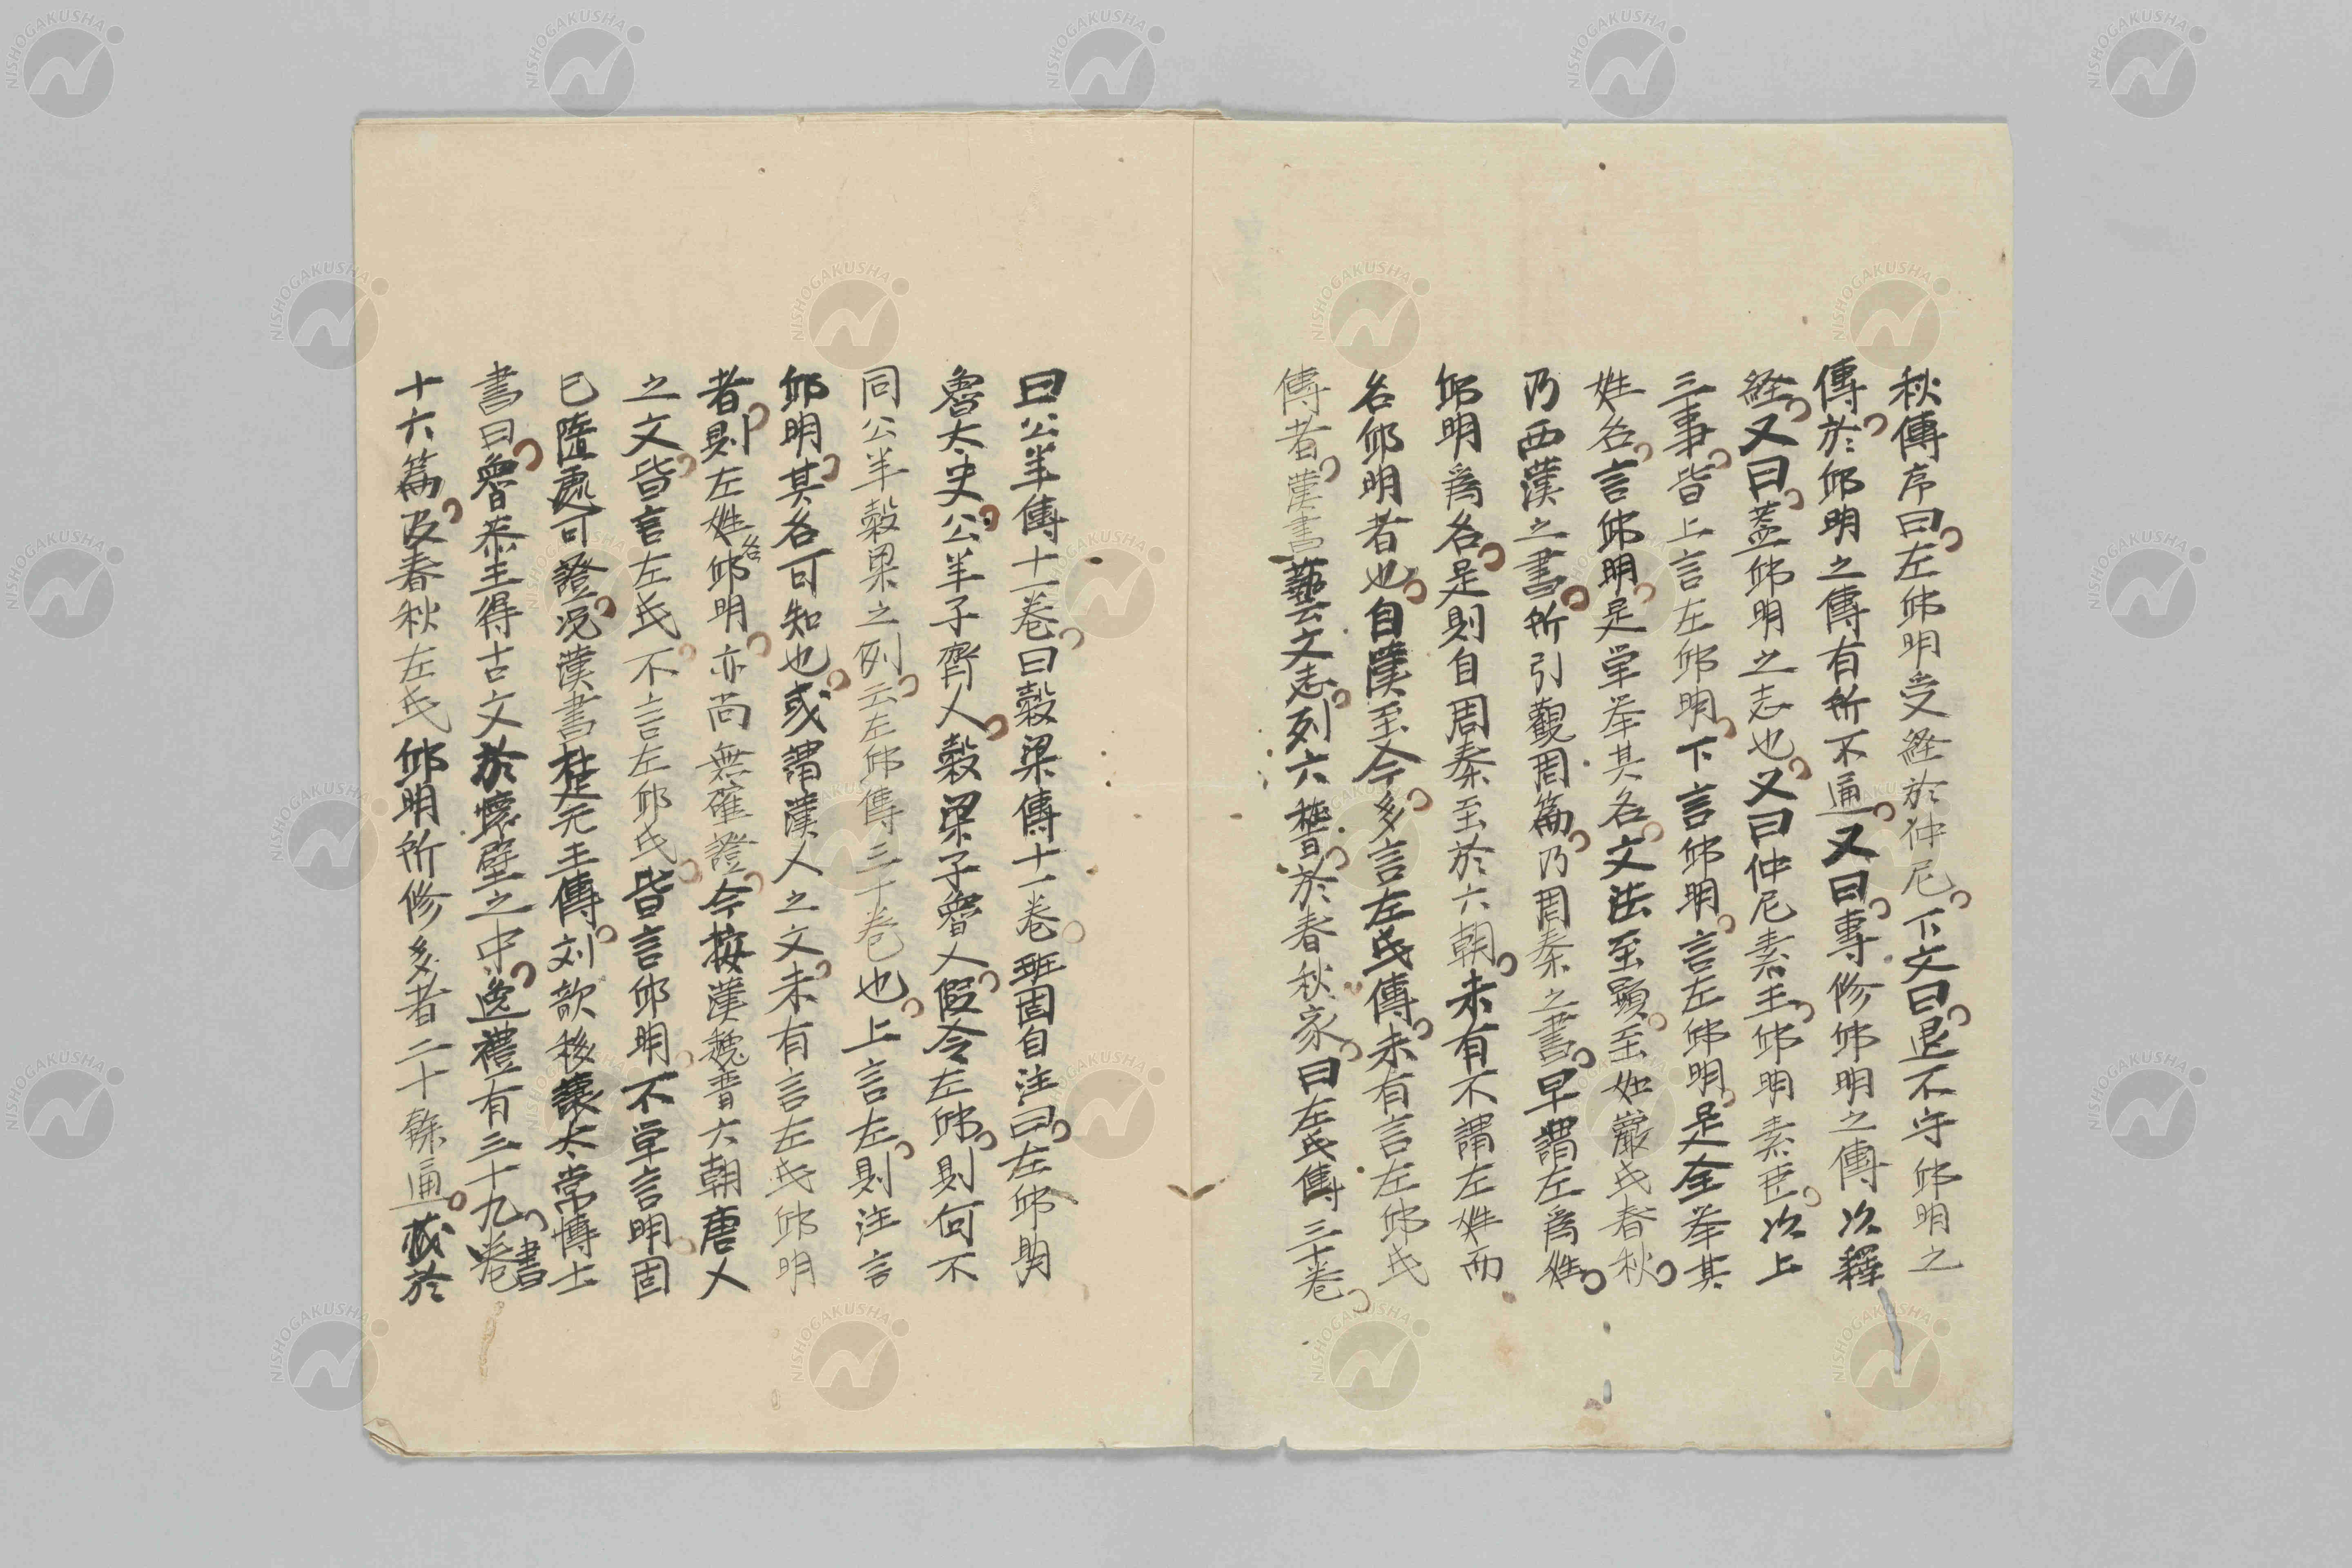 秋傳序曰左邱明受經於仲尼下文曰退不守邱明之
傳於邱明之傳有所不通又曰專修邱明之傳次釋
經又曰蓋邱明之志也又曰仲尼素王邱明素臣次上
三事皆上言左邱明下言邱明言左邱明是全举其
姓名言邱明是単举其名文法至顕至如嚴氏春秋
乃西漢之書所引觀周篇乃周秦之書早謂左爲姓
邱明爲名是則自周秦至於六朝未有不謂左姓而
名邱明者也自漢至今多言左氏傳未有言左邱氏
傳者漢書藝文志列六藝於春秋家曰左氏傳三十卷
曰公羊傳十一卷曰穀梁傳十一卷班固自注曰左邱明
魯太史公羊子齊人穀梁子魯人假令左邱則何不
同公羊穀梁之例云左邱傳三十卷也上言左則注言
邱明其名可知也或謂漢人之文未有言左氏邱明
者則左姓邱明名亦尚無確證今按漢魏晋六朝唐人
之文皆言左氏不言左邱氏皆言邱明不単言明固
已隨處可證况漢書楚元王傳刘歆移讓太常博士
書曰魯恭王得古文於懷壁之中逸禮有三十九卷書
十六篇及春秋左氏邱明所修多者二十餘通蔵於
NISHOGAKUSHA